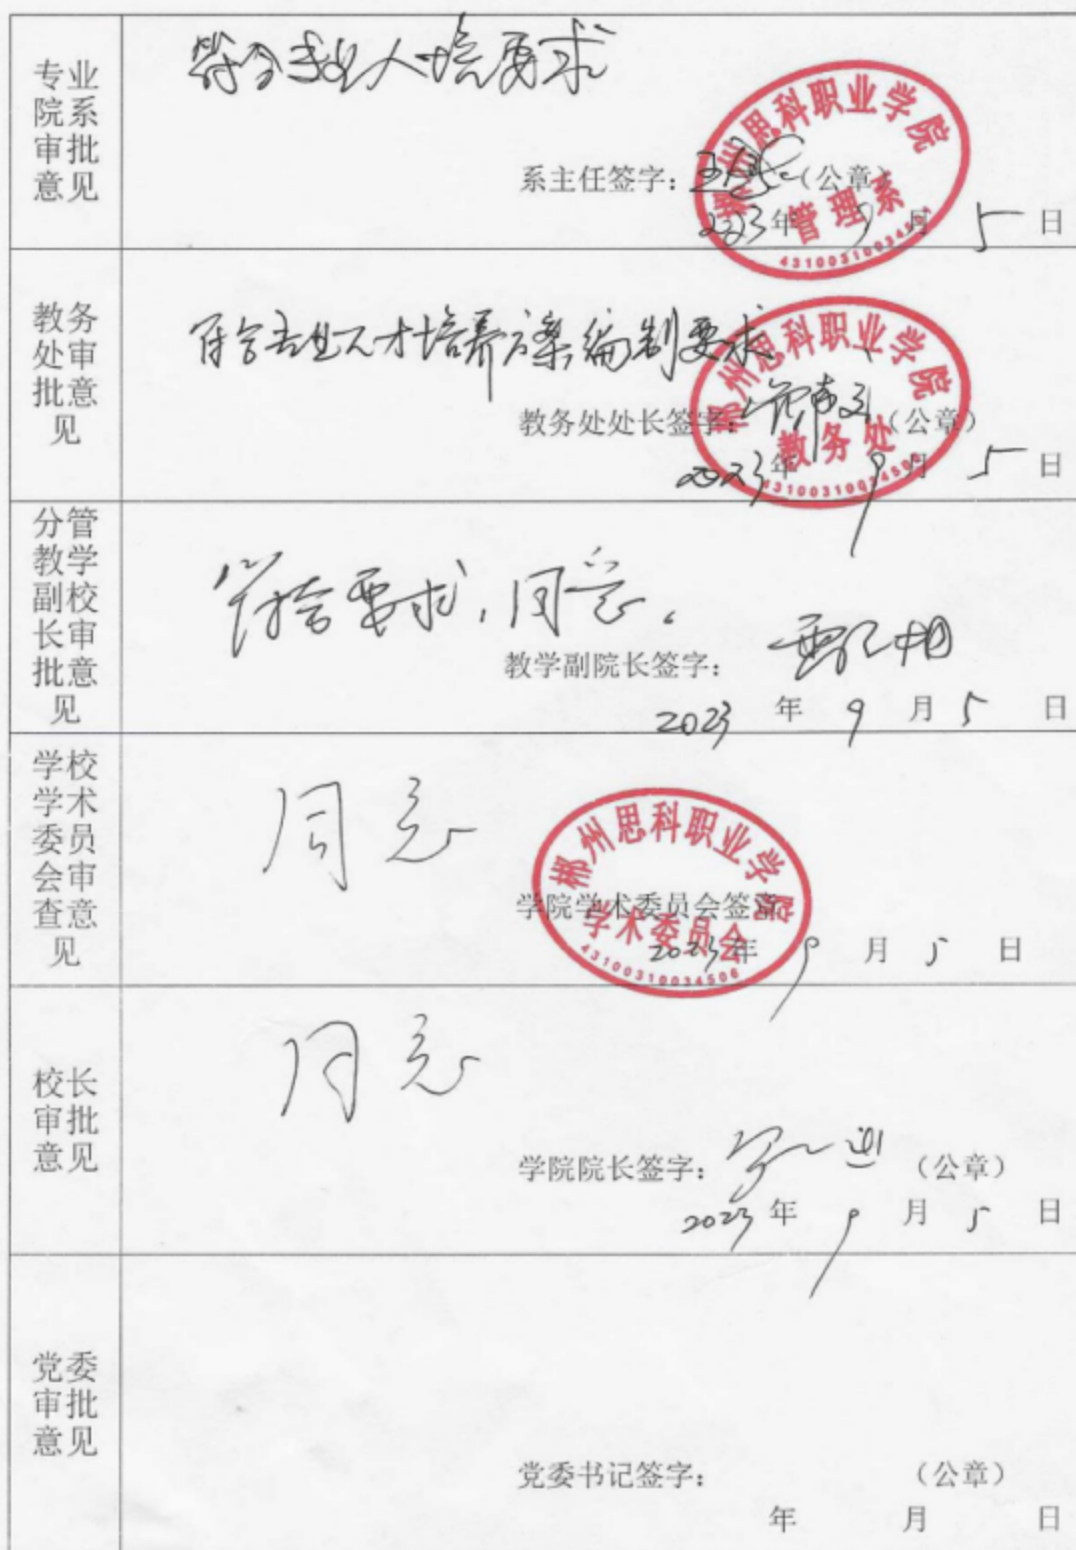 专业
院系
审批
意见
符合专业人培要求
系主任签字：
（公章）
2023年 9 月 5 日
郴州思科职业学院
管理系
教务
处审
批意
见
符合专业人才培养方案编制要求
教务处处长签字：
（公章）
2023年 9 月 5 日
郴州思科职业学院
教务处
分管
教学
副校
长审
批意
见
符合要求，同意。
教学副院长签字：
2023 年 9 月 5 日
学校
学术
委员
会审
查意
见
同意
学院学术委员会签章
2023年 9 月 5 日
郴州思科职业学院
学术委员会
43100310034506
校长
审批
意见
同意
学院院长签字：
（公章）
2023 年 9 月 5 日
党委
审批
意见
党委书记签字： （公章）
年 月 日